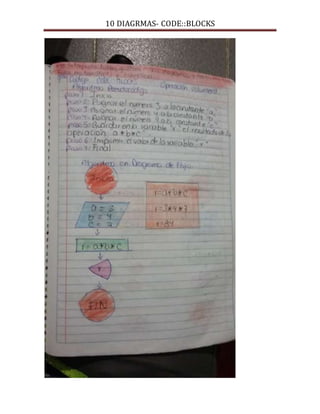 10 DIAGRMAS- CODE::BLOCKS
Codigo Code Blocks
Algoritmo Pseudocódigo Operación Volumen
paso 1: Inicio
paso 2: Asignar el numero 3 a la constante "a"
paso 3: Asignar el numero 4 a la constante "b"
paso 4: Asignar el numero 7 a la constante "c"
paso 5: Guardar en la variable "r" el resultado de la
operación a*b*c
paso 6: Imprimir el valor de la variable "r"
paso 7: Final
Algoritmo en Diagrama de Flujo
Inicio
a = 3
b = 4
c = 7
r=a*b*c
r=3*4*7
r=84
r=a*b*c
r
FIN